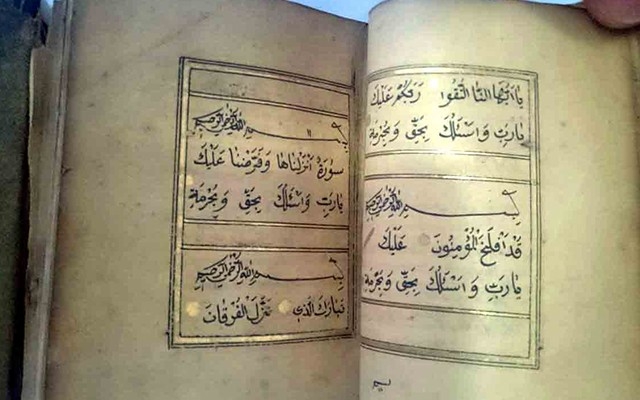 يا ايها النا اتقوا ربكم عليك
يا رب واسئلك بحق وبحرمة
بسم الله الرحمن الرحيم
قد افلح المؤمنون عليك
يا رب واسئلك بحق وبحرمة
بسم الله الرحمن الرحيم
سورة انزلناها وفرضنا عليك
يا رب واسئلك بحق وبحرمة
بسم الله الرحمن الرحيم
تبارك الذي نزل الفرقان